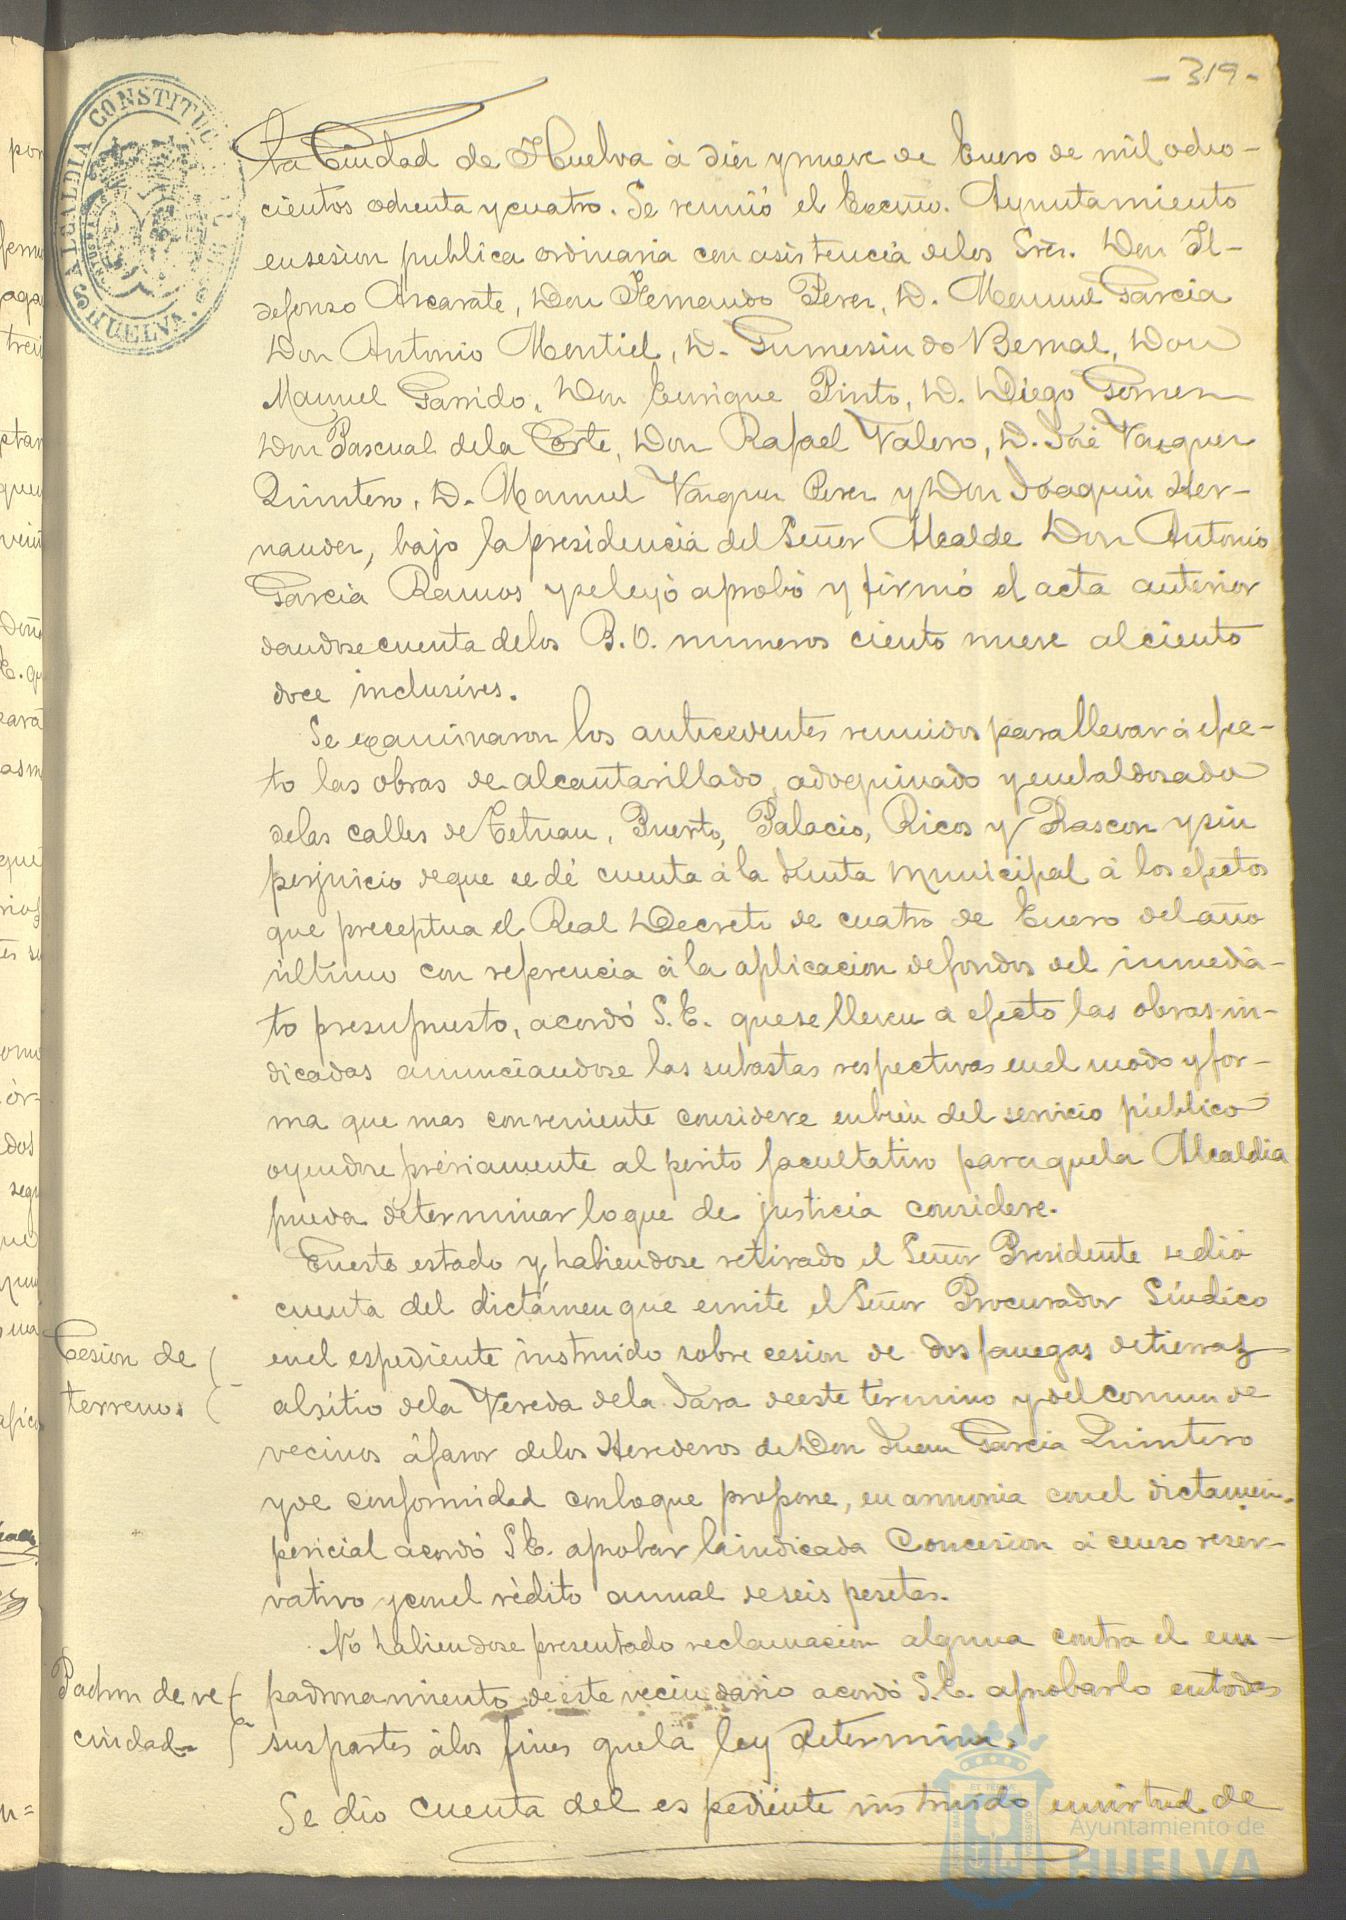 - 319 -
ALCALDIA CONSTITUC
HUELVA.
La Ciudad de Huelva á diez y nueve de Enero de mil ocho-
cientos ochenta y cuatro. Se reunió el Excmo. Ayuntamiento
en sesion publica ordinaria con asistencia de los Sres. Don Il-
defonso Arcarate, Don Fernando Perez, D. Manuel Garcia
Don Antonio Montiel, D. Gumersindo Bernal, Don
Manuel Garrido, Don Enrique Pinto, D. Diego Gomez
Don Pascual de la Corte, Don Rafael Valero, D. José Vazquez
Quintero, D. Manuel Vazquez Perez y Don Joaquin Her-
nandez, bajo la presidencia del Señor Alcalde Don Antonio
Garcia Ramos y se leyó aprobó y firmó el acta anterior
dandose cuenta de los B.O. numeros ciento nueve al ciento
doce inclusives.
Se examinaron los antecedentes reunidos para llevar á efec-
to las obras de alcantarillado, adoquinado y enbaldosado
de las calles de Tetuan, Puerto, Palacio, Ricos y Rascon y sin
perjuicio de que se dé cuenta á la Junta Municipal á los efectos
que preceptua el Real Decreto de cuatro de Enero del año
último con referencia á la aplicacion de fondos del inmedia-
to presupuesto, acordó S.E. que se lleven a efecto las obras in-
dicadas anunciandose las subastas respectivas en el modo y for-
ma que mas conveniente considere en bien del servicio público
oyendose préviamente al perito facultativo para que la Alcaldia
pueda determinar lo que de justicia considere.
En este estado y habiendose retirado el Señor Presidente se dió
cuenta del dictámen que emite el Señor Procurador Síndico
Cesion de
terrenos
en el espediente instruido sobre cesion de dos fanegas de tierras
al sitio de la Vereda de la Jara de este termino y del comun de
vecinos á favor de los Herederos de Don Juan Garcia Quintero
y de conformidad con lo que propone, en armonia con el dictamen
pericial acordó S.E. aprobar la indicada Concesion á censo reser-
vativo y con el rédito anual de seis pesetas.
No habiendose presentado reclamacion alguna contra el em-
Padron de ve
cindad
padronamiento de este vecindario acordó S.E. aprobarlo en todas
sus partes á los fines que la ley determina.
Se dio cuenta del espediente instruido en virtud de
Ayuntamiento de
HUELVA